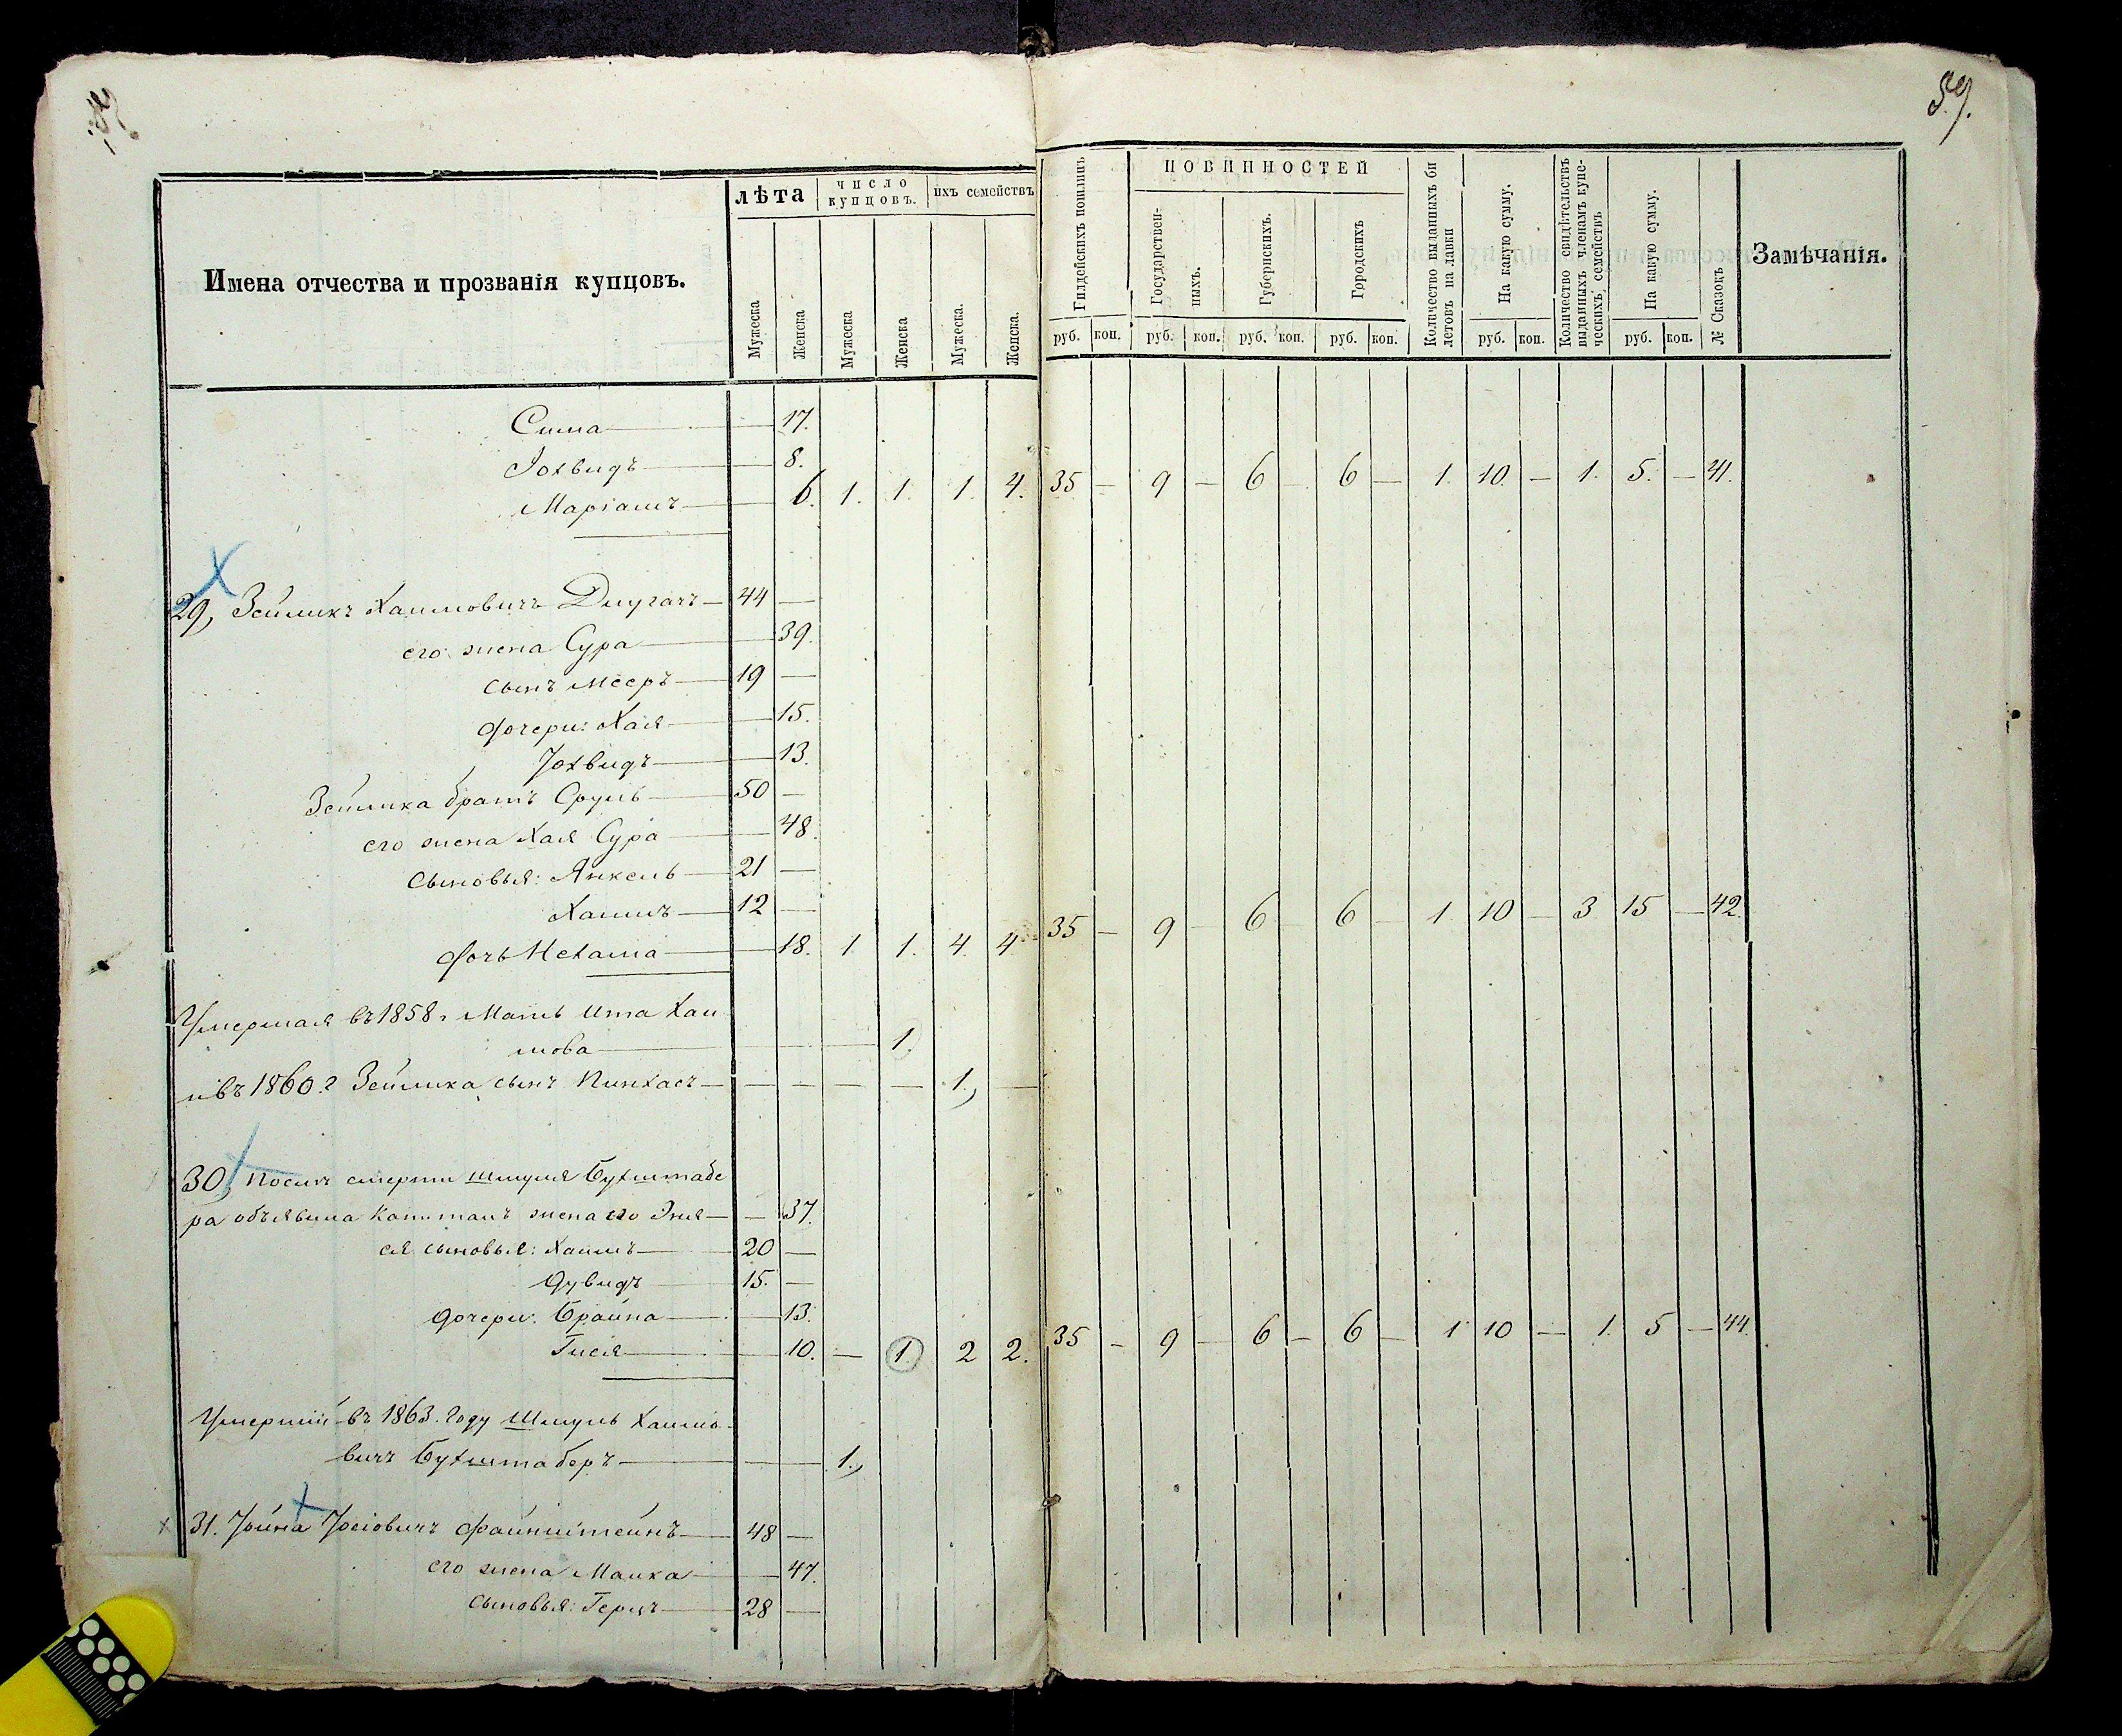 59.
Имена отчества и прозванія купцовъ.
лѣта
число купцовъ.
ихъ семействъ
Мужеска
Женска
Мужеска
Женска
Мужеска.
Женска.
Гилдейскихъ пошлинъ
руб. коп.
ПОВИННОСТЕЙ
Государствен-
ныхъ.
руб. коп.
Губернскихъ.
руб. коп.
Городскихъ
руб. коп.
Количество выданныхъ би
летовъ на лавки
На какую сумму.
руб. коп.
Количество свидѣтельствъ
выданныхъ членамъ купе-
ческихъ семействъ
На какую сумму.
руб. коп.
№ Сказокъ
Замѣчанія.
Сима — 17.
Іохвидъ — 8.
Маріамъ — 6. 1. 1. 1. 4. 35 — 9 — 6 — 6 — 1. 10 — 1. 5. — 41.
29, Зейликъ Хаимовичъ Длугачъ — 44 —
его жена Сура — 39.
сынъ Мееръ — 19 —
дочери: Хая — 15.
Іохвидъ — 13.
Зейлика братъ Сруль — 50 —
его жена Хая Сура — 48.
сыновья: Янкель — 21 —
Хаимъ — 12 —
дочь Нехама — 18. 1. 1. 4. 4. 35 — 9 — 6 — 6 — 1 10 — 3 15 — 42.
Умершая въ 1858 г Мать Ита Хаи
мова — 1.
и въ 1860. г Зейлика сынъ Пинхасъ — — — — — 1., —
30, Послѣ смерти Шмуля Бухштабе
ра объявила Капиталъ жена его Эня — — 37.
ея сыновья: Хаимъ — 20 —
Дувидъ — 15. —
дочери: Брайна — 13.
Гися — 10. — 1. 2 2. 35 — 9 — 6 — 6 — 1 10 — 1. 5 — 44.
Умершій въ 1863. году Шмуль Хаимо-
вичъ Бухштаберъ — 1.,
31. Іойна Іосіовичъ Файнштейнъ — 48 —
его жена Малка — 47.
сыновья: Герцъ — 28 —